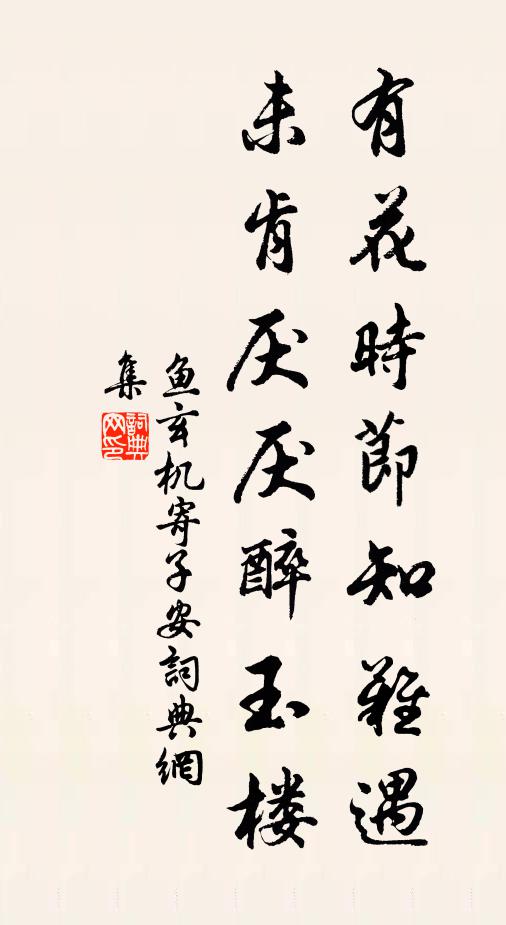 有花時節知難遇
未肯厌厌醉玉楼
鱼玄机寄子安詞典網
集
詞典
网印